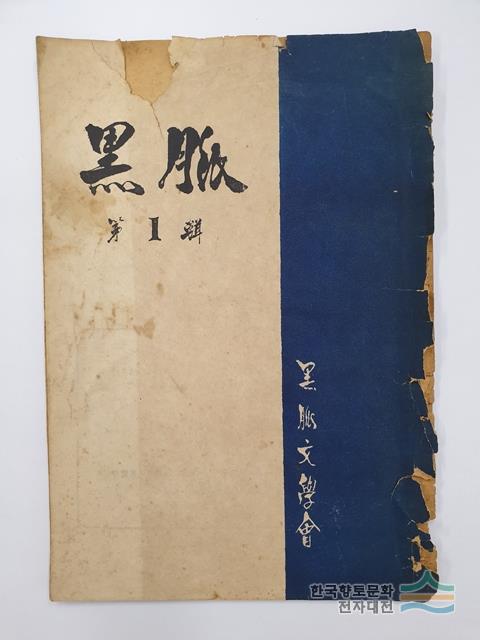 黑脈
第1輯
黑脈文學會
한국향토문화
전자대전